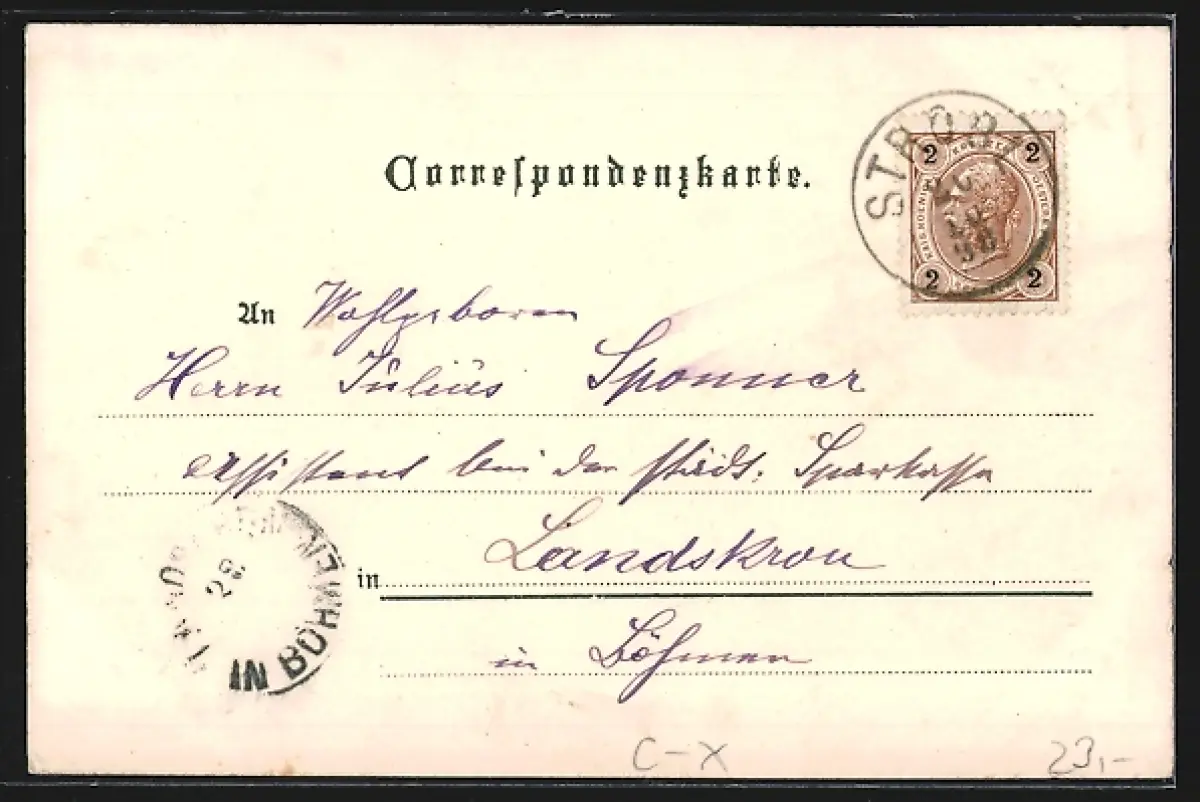 Correspondenzkarte.
STRÖBL
98
2 2
2 2
An Wohlgeboren
Herrn Julius Sponner
Assistent bei der städt. Sparkasse
in Landskron
in Böhmen
28
IN BÖHMEN
C-X
23,-